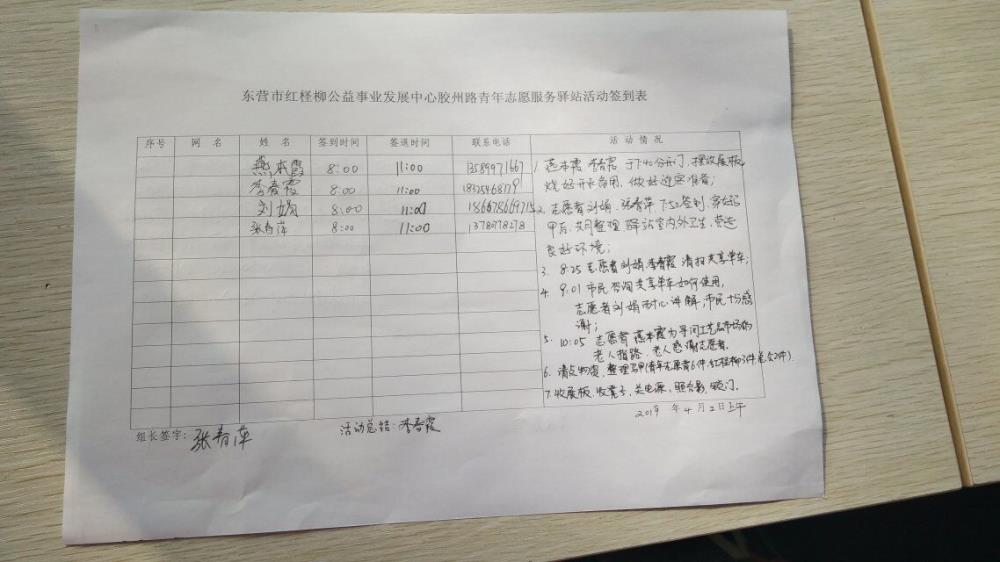 东营市红柽柳公益事业发展中心胶州路青年志愿服务驿站活动签到表
序号 网 名 姓 名 签到时间 签退时间 联系电话 活动情况
燕本霞 8:00 11:00 13589971667
李春霞 8:00 11:00
刘娟 8:00 11:00
张春萍 8:00 11:00 13780778278
1. 燕本霞 李春霞 于7:40分开门,摆放展板,
烧好开水备用,做好迎宾准备;
2. 志愿者刘娟、张春萍 7:50签到,穿好马
甲后,共同整理驿站室内外卫生,营造
良好环境;
3. 8:25 志愿者刘娟、李春霞 清扫共享单车;
4. 9:01 市民咨询共享单车如何使用,
志愿者刘娟耐心讲解,市民十分感
谢;
5. 10:05 志愿者 燕本霞为寻问工艺品市场的
老人指路,老人感谢志愿者。
6. 清点物资,整理马甲(青年志愿者6件,红柽柳3件
7. 收展板,收凳子,关电源,照合影,锁门。
2019 年 4 月 2 日上午
组长签字: 张春萍 活动总结: 李春霞